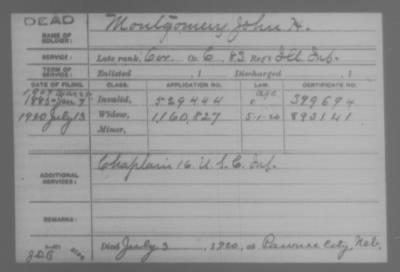 DEAD
NAME OF SOLDIER: Montgomery, John H.
SERVICE: Late rank, Cor. Co. C, 83 Reg't Ill. Inf.
TERM OF SERVICE: Enlisted , 1 Discharged , 1
DATE OF FILING. CLASS. APPLICATION NO. LAW. CERTIFICATE NO.
Invalid, 529444 399694
1920 July 13 Widow, 1,160,827 5-1-20 893141
Minor,
ADDITIONAL SERVICES: Chaplain 16. U.S.C. Inf.
REMARKS:
Died July 3, 1920, at Pawnee City, Neb.